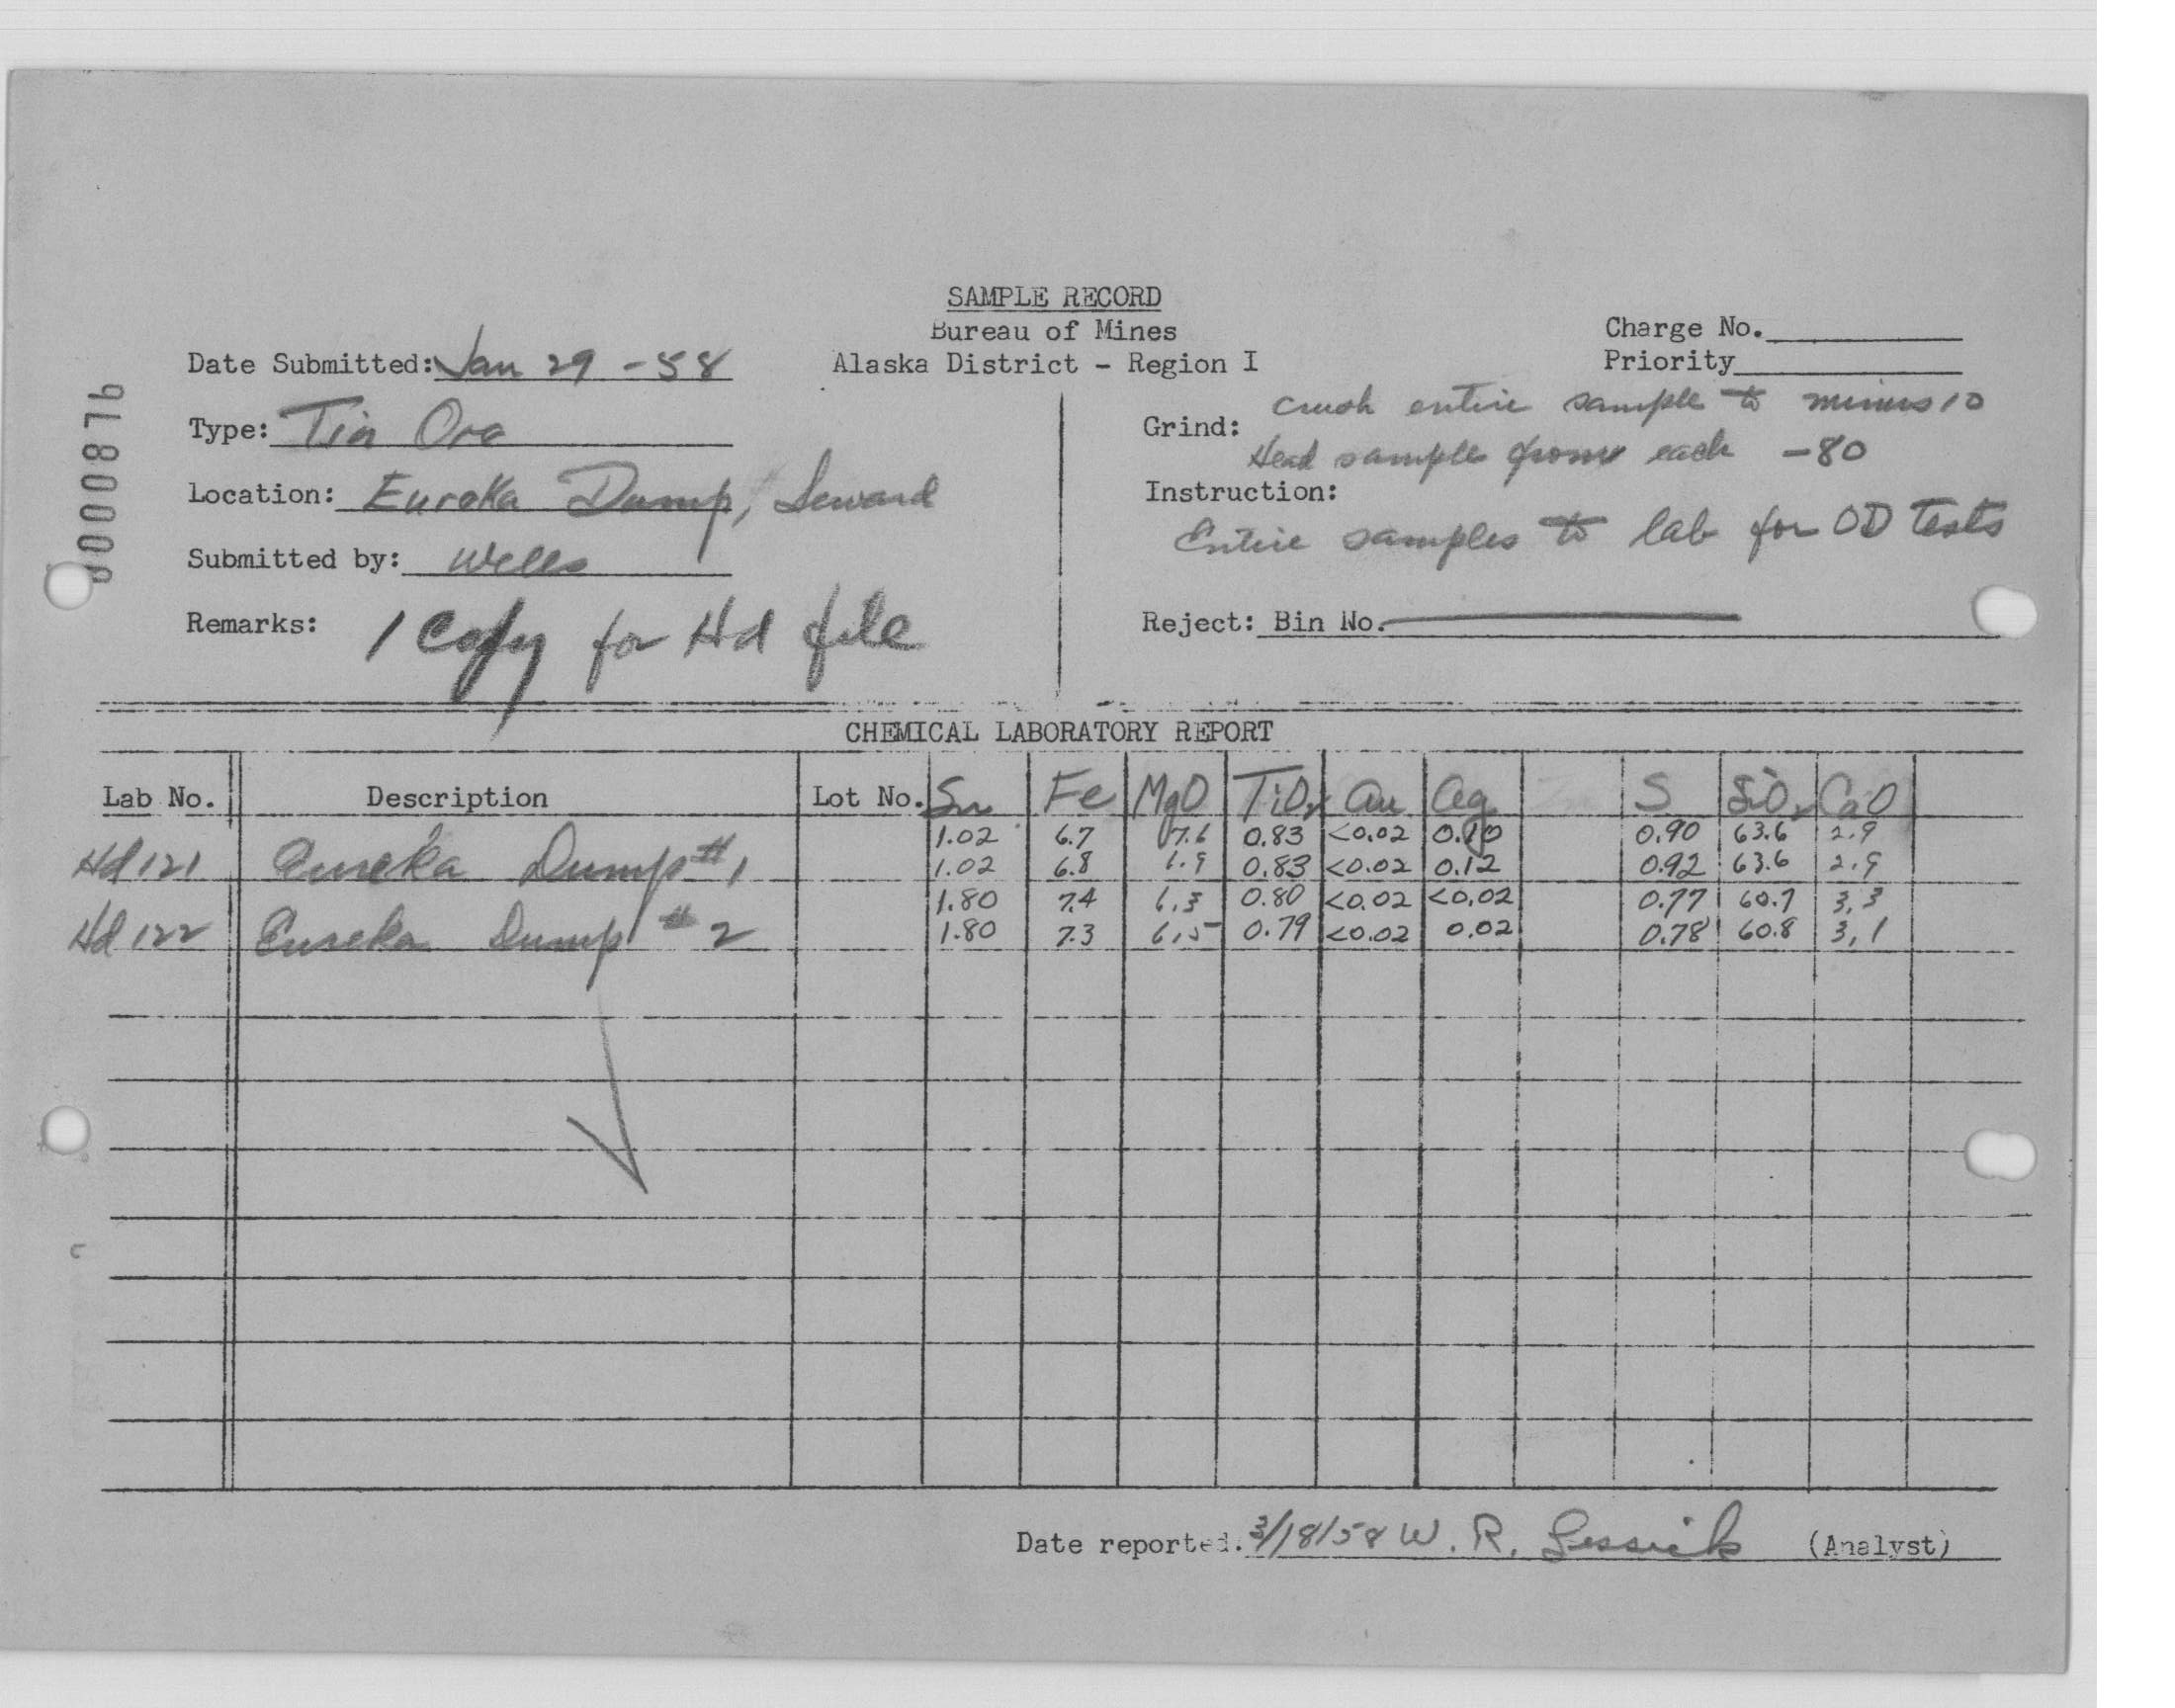 SAMPLE RECORD
Bureau of Mines
Alaska District - Region I
Charge No.
Priority
Date Submitted: Jan 29 - 58
Type: Tin Ore
Location: Eureka Dump, Seward
Submitted by: Wells
Remarks: 1 Copy for Hd file
0000876
Grind: crush entire sample to minus 10
Head sample from each -80
Instruction:
Entire samples to lab for OD Tests
Reject: Bin No.
CHEMICAL LABORATORY REPORT
Lab No. Description Lot No. Sn Fe MgO TiO2 Au Ag S SiO2 CaO
1.02 6.7 7.6 0.83 <0.02 0.10 0.90 63.6 2.9
Hd 121 Eureka Dump #1 1.02 6.8 0.83 <0.02 0.12 0.92 63.6 2.9
1.80 7.4 6.3 0.80 <0.02 <0.02 0.77 60.7 3.3
Hd 122 Eureka Dump #2 1.80 7.3 6.5 0.79 <0.02 0.02 0.78 60.8 3.1
Date reported. 3/18/58 W. R. (Analyst)